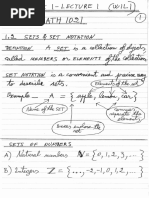 1 - LECTURE 1 (W1L1)
MATH 1021
1.2 SETS & SET NOTATION
DEFINITION A SET is a collection of objects,
called MEMBERS or ELEMENTS of the collection
SET NOTATION is a convenient and precise way
to describe sets.
Example A = { apple, lemon, car }
Name of the set
SETS OF NUMBERS
A) Natural numbers ℕ = {0, 1, 2, 3, ...
B) Integers ℤ = {..., -2, -1, 0, 1, 2, ...